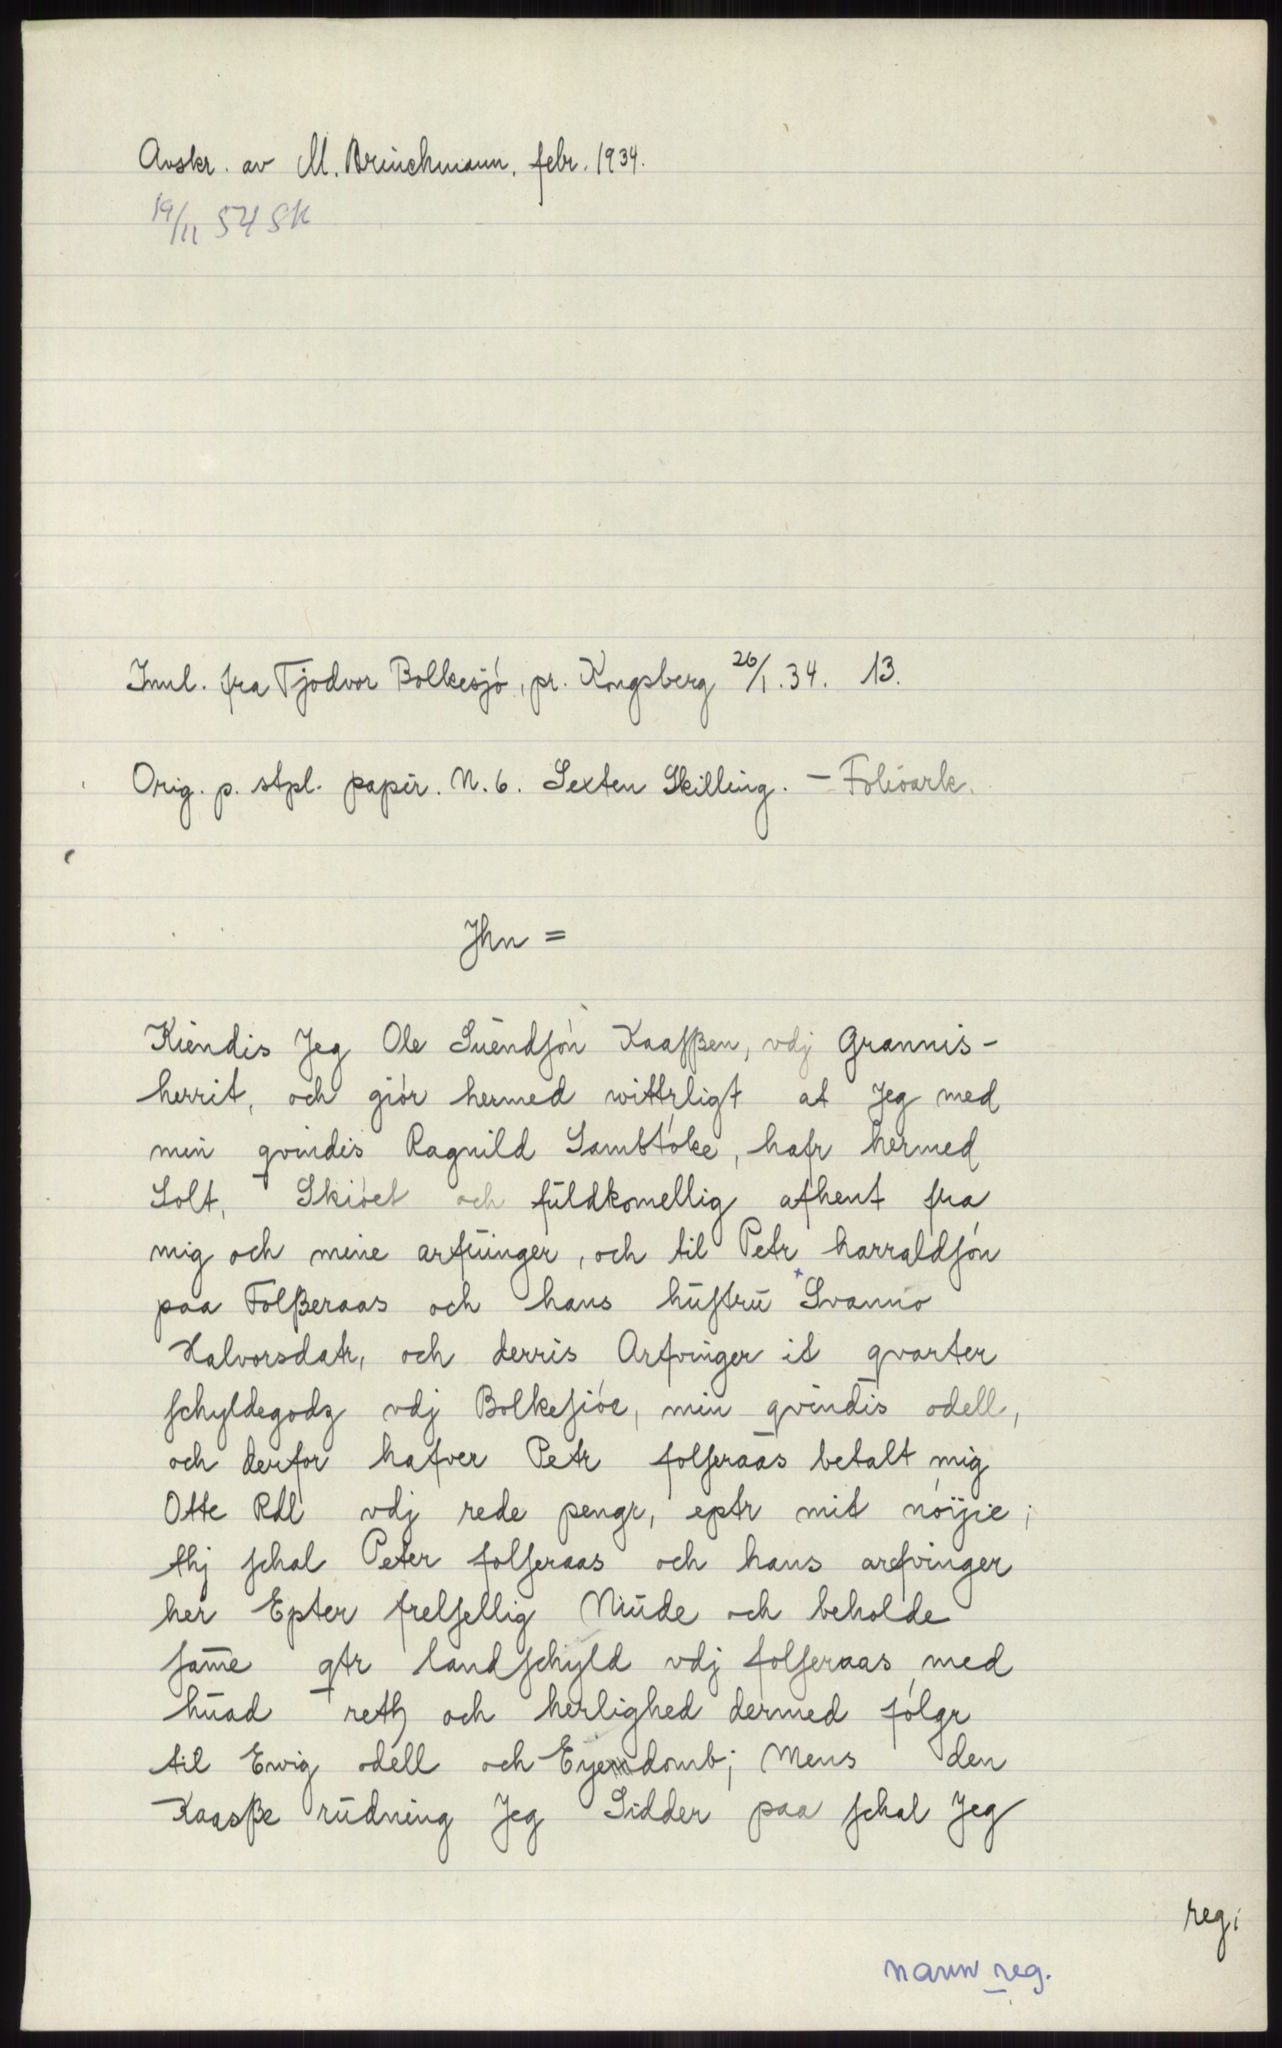 Avskr. av M. Brinchmann. febr. 1934.
19/11 54 SK
Innl. fra Tjodvor Bolkesjö, pr. Kongsberg 26/1. 34. 13.
Orig. p. stpl. papir. N. 6. Sexten Skilling. – Folioark.
Jhn =
Kiendis Jeg Ole Suendsón Kaasßen, vdj Grannis-
herrit, och giór hermed wittrligt at Jeg med
min qvindis Ragnild Sambtóke, hafr hermed
Solt, Skióet och fuldkomellig afhent fra
mig och mine arfuinger, och til Petr harraldsón
paa Folßeraas och hans hustru Svanno
Halvorsdatr, och derris Arfvinger it qvarter
schyldegodz vdj Bolkesióe, min qvindis odell,
och derfor hafver Petr folseraas betalt mig
Otte Rdl vdj rede pengr, eptr mit nóÿie;
thj schal Peter folseraas och hans arfvinger
her Epter frelsellig Niude och beholde
sam̅e qtr landschyld vdj folseraas med
huad reth och herlighed dermed fólgr
til Ewig odell och Eyendomb; Mens den
Kaasße rudning Jeg Sidder paa schal Jeg
reg.
navn reg.